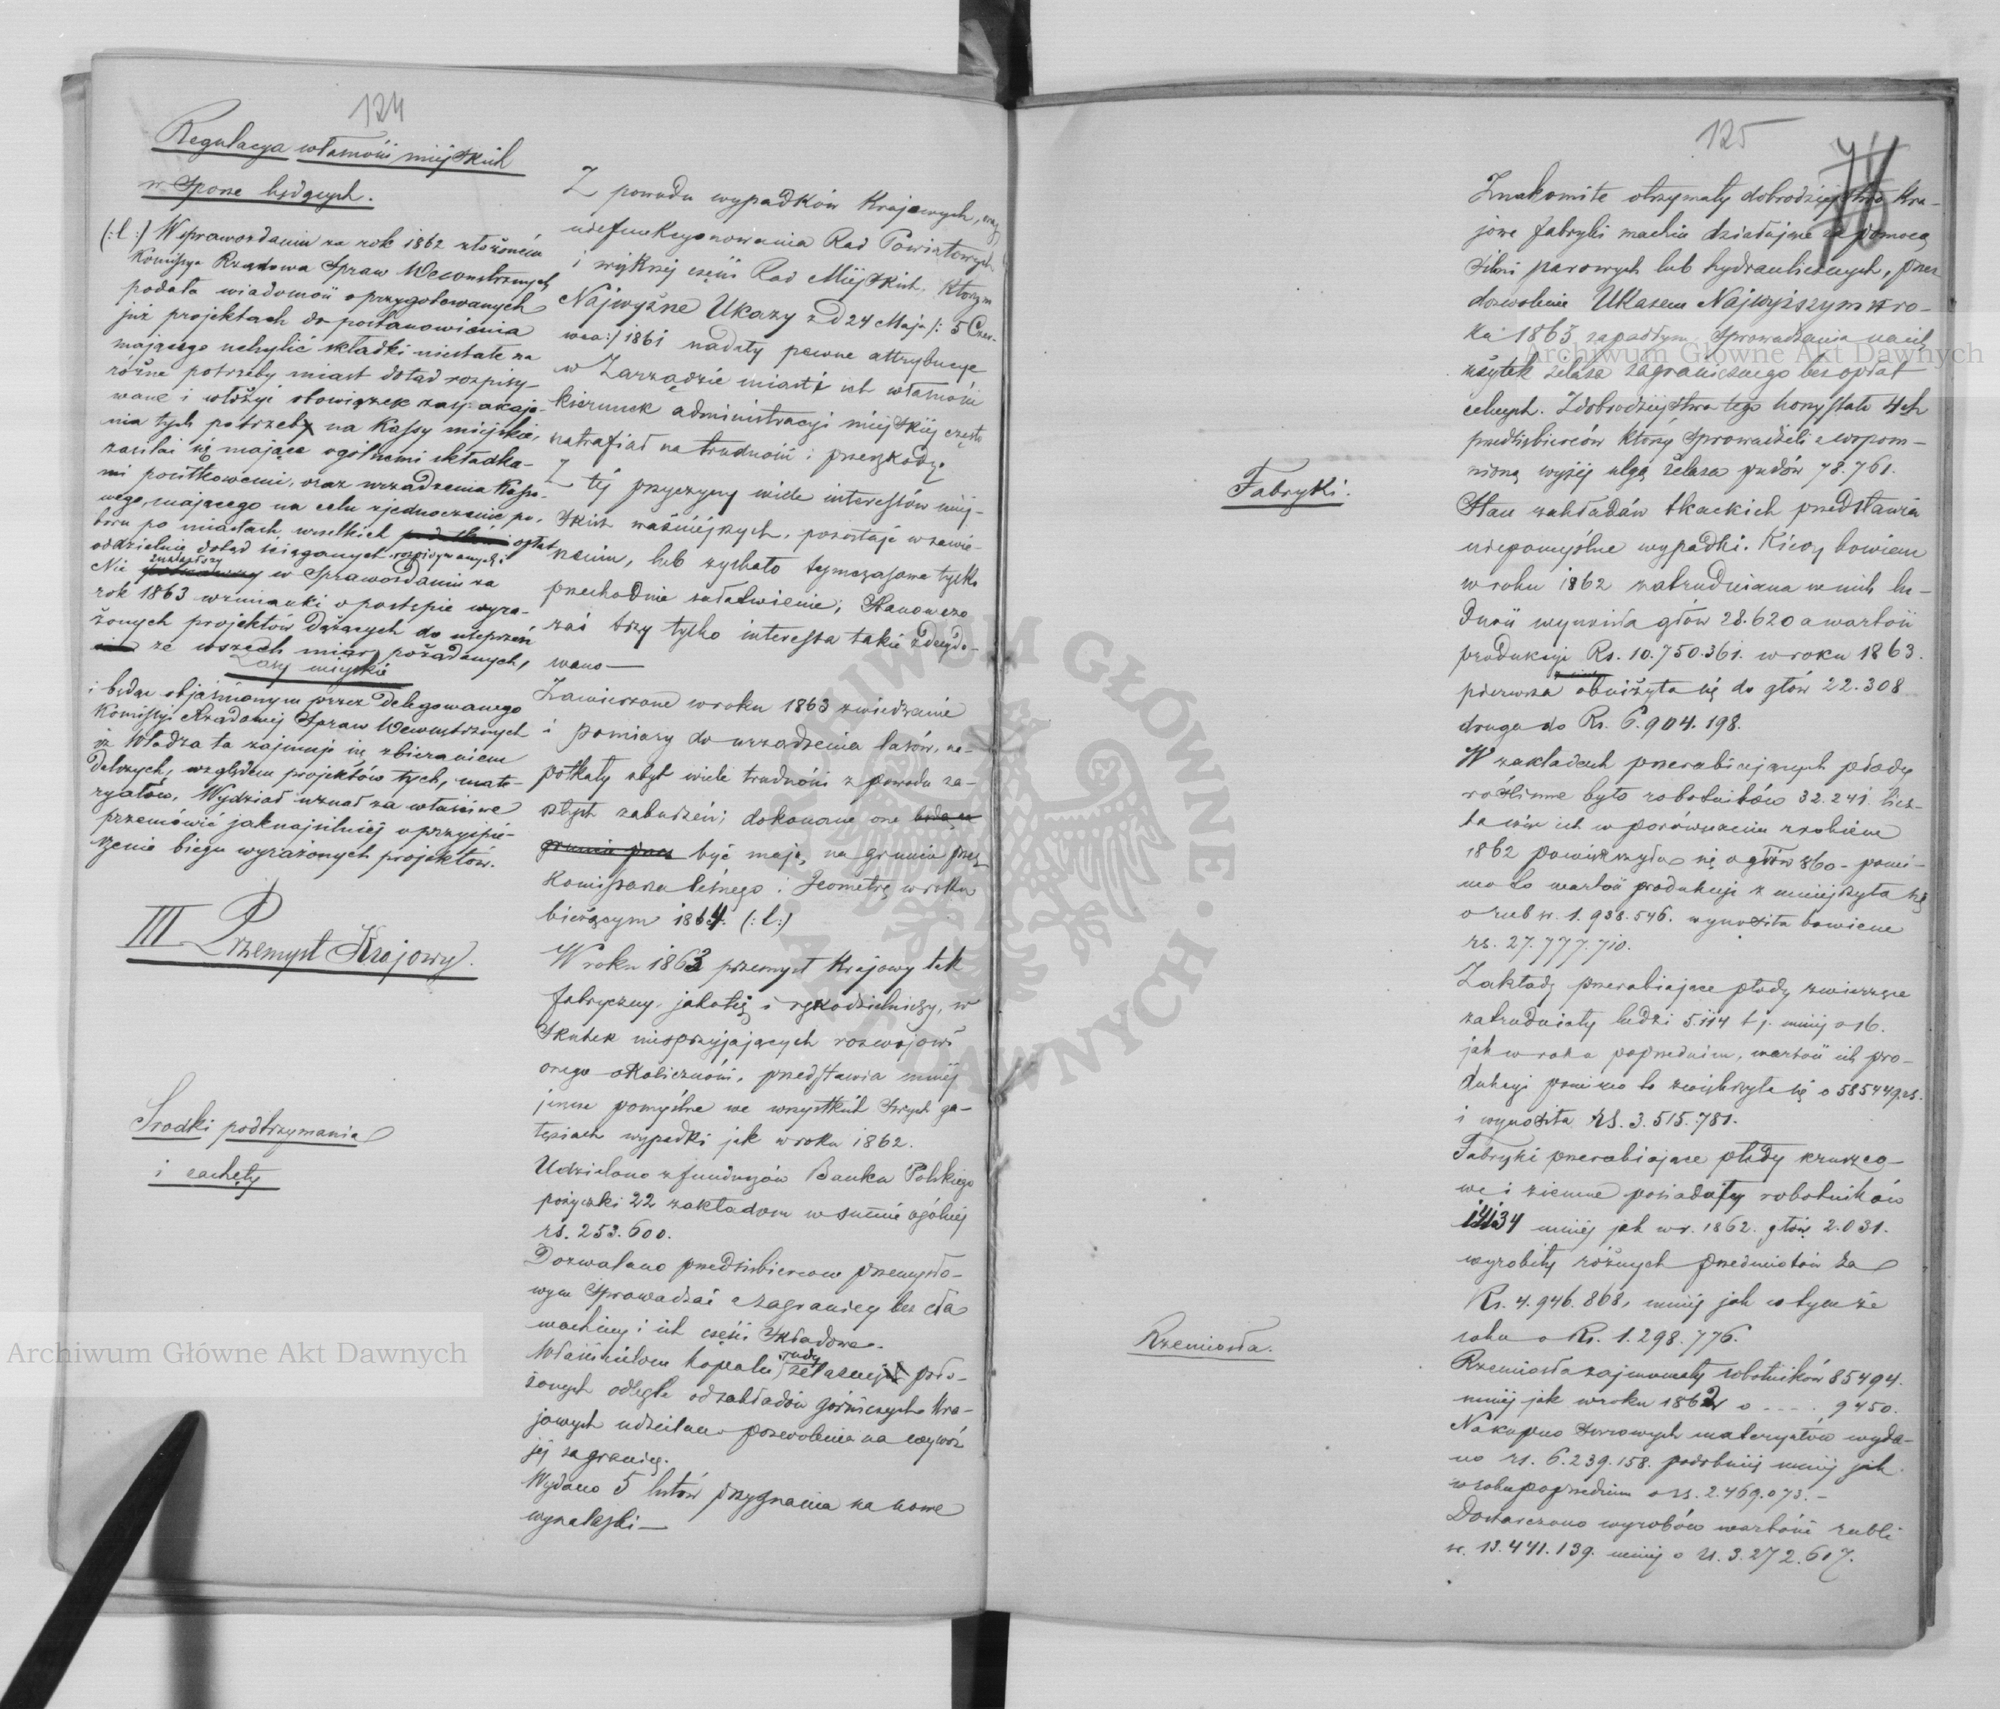 124
Regulacya własności miejskich
w sporze będących.
(:l:) W sprawozdaniu za rok 1862 złożonem
Kommissya Rządowa Spraw Wewnętrznych
podała wiadomość o przygotowanych
już projektach do postanowienia
mającego uchylić składki niestałe na
różne potrzeby miast dotąd rozpisy-
wane i włożyć obowiązek zaspakaja-
nia tych potrzeb na Kassy miejskie,
zasilać się mające ogólnemi składka-
mi posiłkowemi, oraz urządzenia Kasso-
wego, mającego na celu zjednoczenie po-
boru po miastach wszelkich opłat
oddzielnie dotąd ściąganych i rozpisywanych
Nie znalazłszy w Sprawozdaniu za
rok 1863 wzmianki o postępie wyra-
żonych projektów dążących do ulepszeń
ze wszech miar pożądanych,
Lasy miejskie
i będąc objaśnionym przez Delegowanego
Komissyi Rządowej Spraw Wewnętrznych
iż Władza ta zajmuje się zbieraniem
dalszych, względem projektów tych, mate-
ryałów, Wydział uznał za właściwe
przemówić jaknajsilniej o przyspie-
szenie biegu wyrażonych projektów.
III Przemysł Krajowy.
Środki podtrzymania
i zachęty
Z powodu wypadków Krajowych, oraz
niefunkcyonowania Rad Powiatowych
i większej części Rad Miejskich, którym
Najwyższe Ukazy z d 24 Maja /: 5 Czer-
wca :/ 1861 nadały pewne attrybucye
w Zarządzie miast i ich własności
kierunek administracyi miejskiej często
natrafiał na trudności i przeszkody.
Z tej przyczyny wiele interessów miej-
skich ważniejszych, pozostaje w zawie-
szeniu, lub zyskało tymczasowe tylko
przechodnie załatwienie; Stanowczo
zaś trzy tylko interessa takie zdecydo-
wano —
Zawieszone w roku 1863 zwiedzanie
i pomiary do urządzenia lasów, na-
potkały zbyt wiele trudności z powodu za-
szłych zaburzeń; dokonane one
być mają, na gruncie przez
Komissarza leśnego i Jeometrę w roku
bieżącym 1864. (:l:)
W roku 1863 przemysł Krajowy tak
fabryczny, jakoteż i rękodzielniczy, w
skutek niesprzyjających rozwojowi
onego okoliczności, przedstawia mniej
jeszcze pomyślne we wszystkich swych ga-
łęziach wypadki jak w roku 1862.
Udzielono z funduszów Banku Polskiego
pożyczki 22 zakładom w summie ogólnej
rs. 253.600.
Dozwalano przedsiębiercom przemysło-
wym sprowadzać z zagranicy bez cła
machiny i ich części składowe.
Właścicielom kopalń rudy żelaznej poło-
żonych odlegle od zakładów górniczych Kra-
jowych udzielano pozwolenia na wywóz
jej za granicę.
Wydano 5 listów przyznania na nowe
wynalazki —
125
Fabryki.
Rzemiosła.
Znakomite otrzymały dobrodziejstwo Kra-
jowe fabryki machin działające za pomocą
silni parowych lub hydraulicznych, przez
dozwolenie Ukazem Najwyższym w ro-
ku 1863 zapadłym, sprowadzania na ich
użytek żelaza zagranicznego bez opłat
celnych. Z dobrodziejstwa tego korzystało 4ch
przedsiębierców którzy sprowadzili z wspom-
nioną wyżej ulgą żelaza pudów 78.761.
Stan zakładów tkackich przedstawia
niepomyślne wypadki. Kiedy bowiem
w roku 1862 zatrudniana w nich lu-
dność wynosiła głów 28.620 a wartość
produkcyi Rs. 10.750.361. w roku 1863.
pierwsza obniżyła się do głów 22.308
druga do Rs. 6.904.198.
W zakładach przerabiających płody
roślinne było robotników 32.241. licz-
ba więc ich w porównaniu z robiem
1862 powiększyła się o głów 860 - pomi-
mo to wartość produkcyi zmniejszyła się
o rub sr. 1.938.546. wynosiła bowiem
rs. 27.777.710.
Zakłady przerabiające płody zwierzęce
zatrudniały ludzi 5.114 t.j. mniej o 16.
jak w roku poprzednim, wartość ich pro-
dukcyi pomimo to zwiększyła się o 585449 rs.
i wynosiła rs. 3.515.781.
Fabryki przerabiające płody kruszco-
we i ziemne posiadały robotników
mniej jak w r. 1862. głów 2.031.
wyrobiły różnych przedmiotów za
Rs. 4.946.868, mniej jak w tymże
roku o Rs. 1.298.776.
Rzemiosła zajmowały robotników 85494.
mniej jak w roku 1862 o - - - . 9450.
Na kupno surowych materyałów wyda-
no rs. 6.239.158. podobnież mniej jak
w roku poprzednim o rs. 2.469.073. -
Dostarczono wyrobów wartości rubli
sr. 13.441.139. mniej o rs. 3.272.617.
Archiwum Główne Akt Dawnych
Archiwum Główne Akt Dawnych
ARCHIWUM GŁÓWNE · AKT DAWNYCH ·